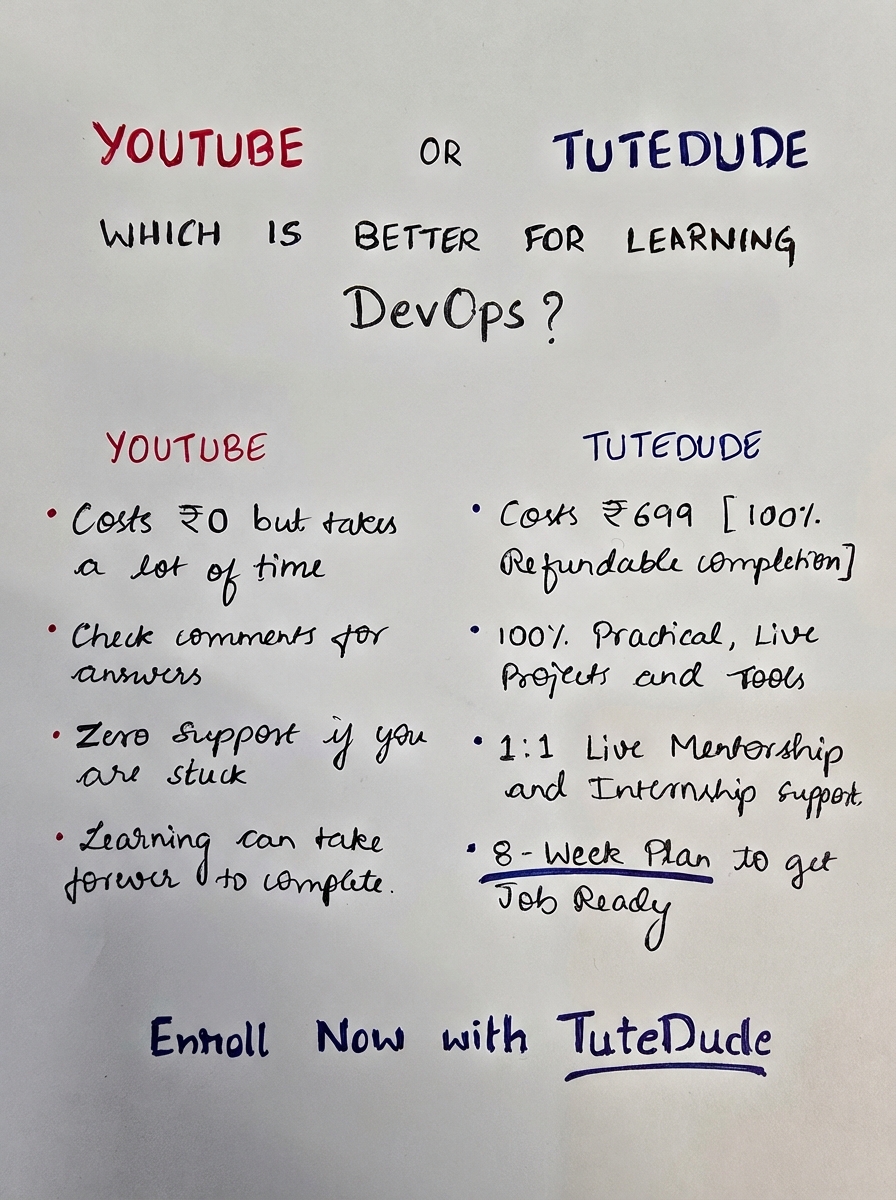 YOUTUBE OR TUTEDUDE
WHICH IS BETTER FOR LEARNING
DevOps ?
YOUTUBE
• Costs ₹0 but takes
a lot of time
• Check comments for
answers
• Zero support if you
are stuck
• Learning can take
forever to complete.
TUTEDUDE
• Costs ₹699 [100%
Refundable completion]
• 100% Practical, Live
Projects and Tools
• 1:1 Live Mentorship
and Internship support.
• 8-Week Plan to get
Job Ready
Enroll Now with TuteDude